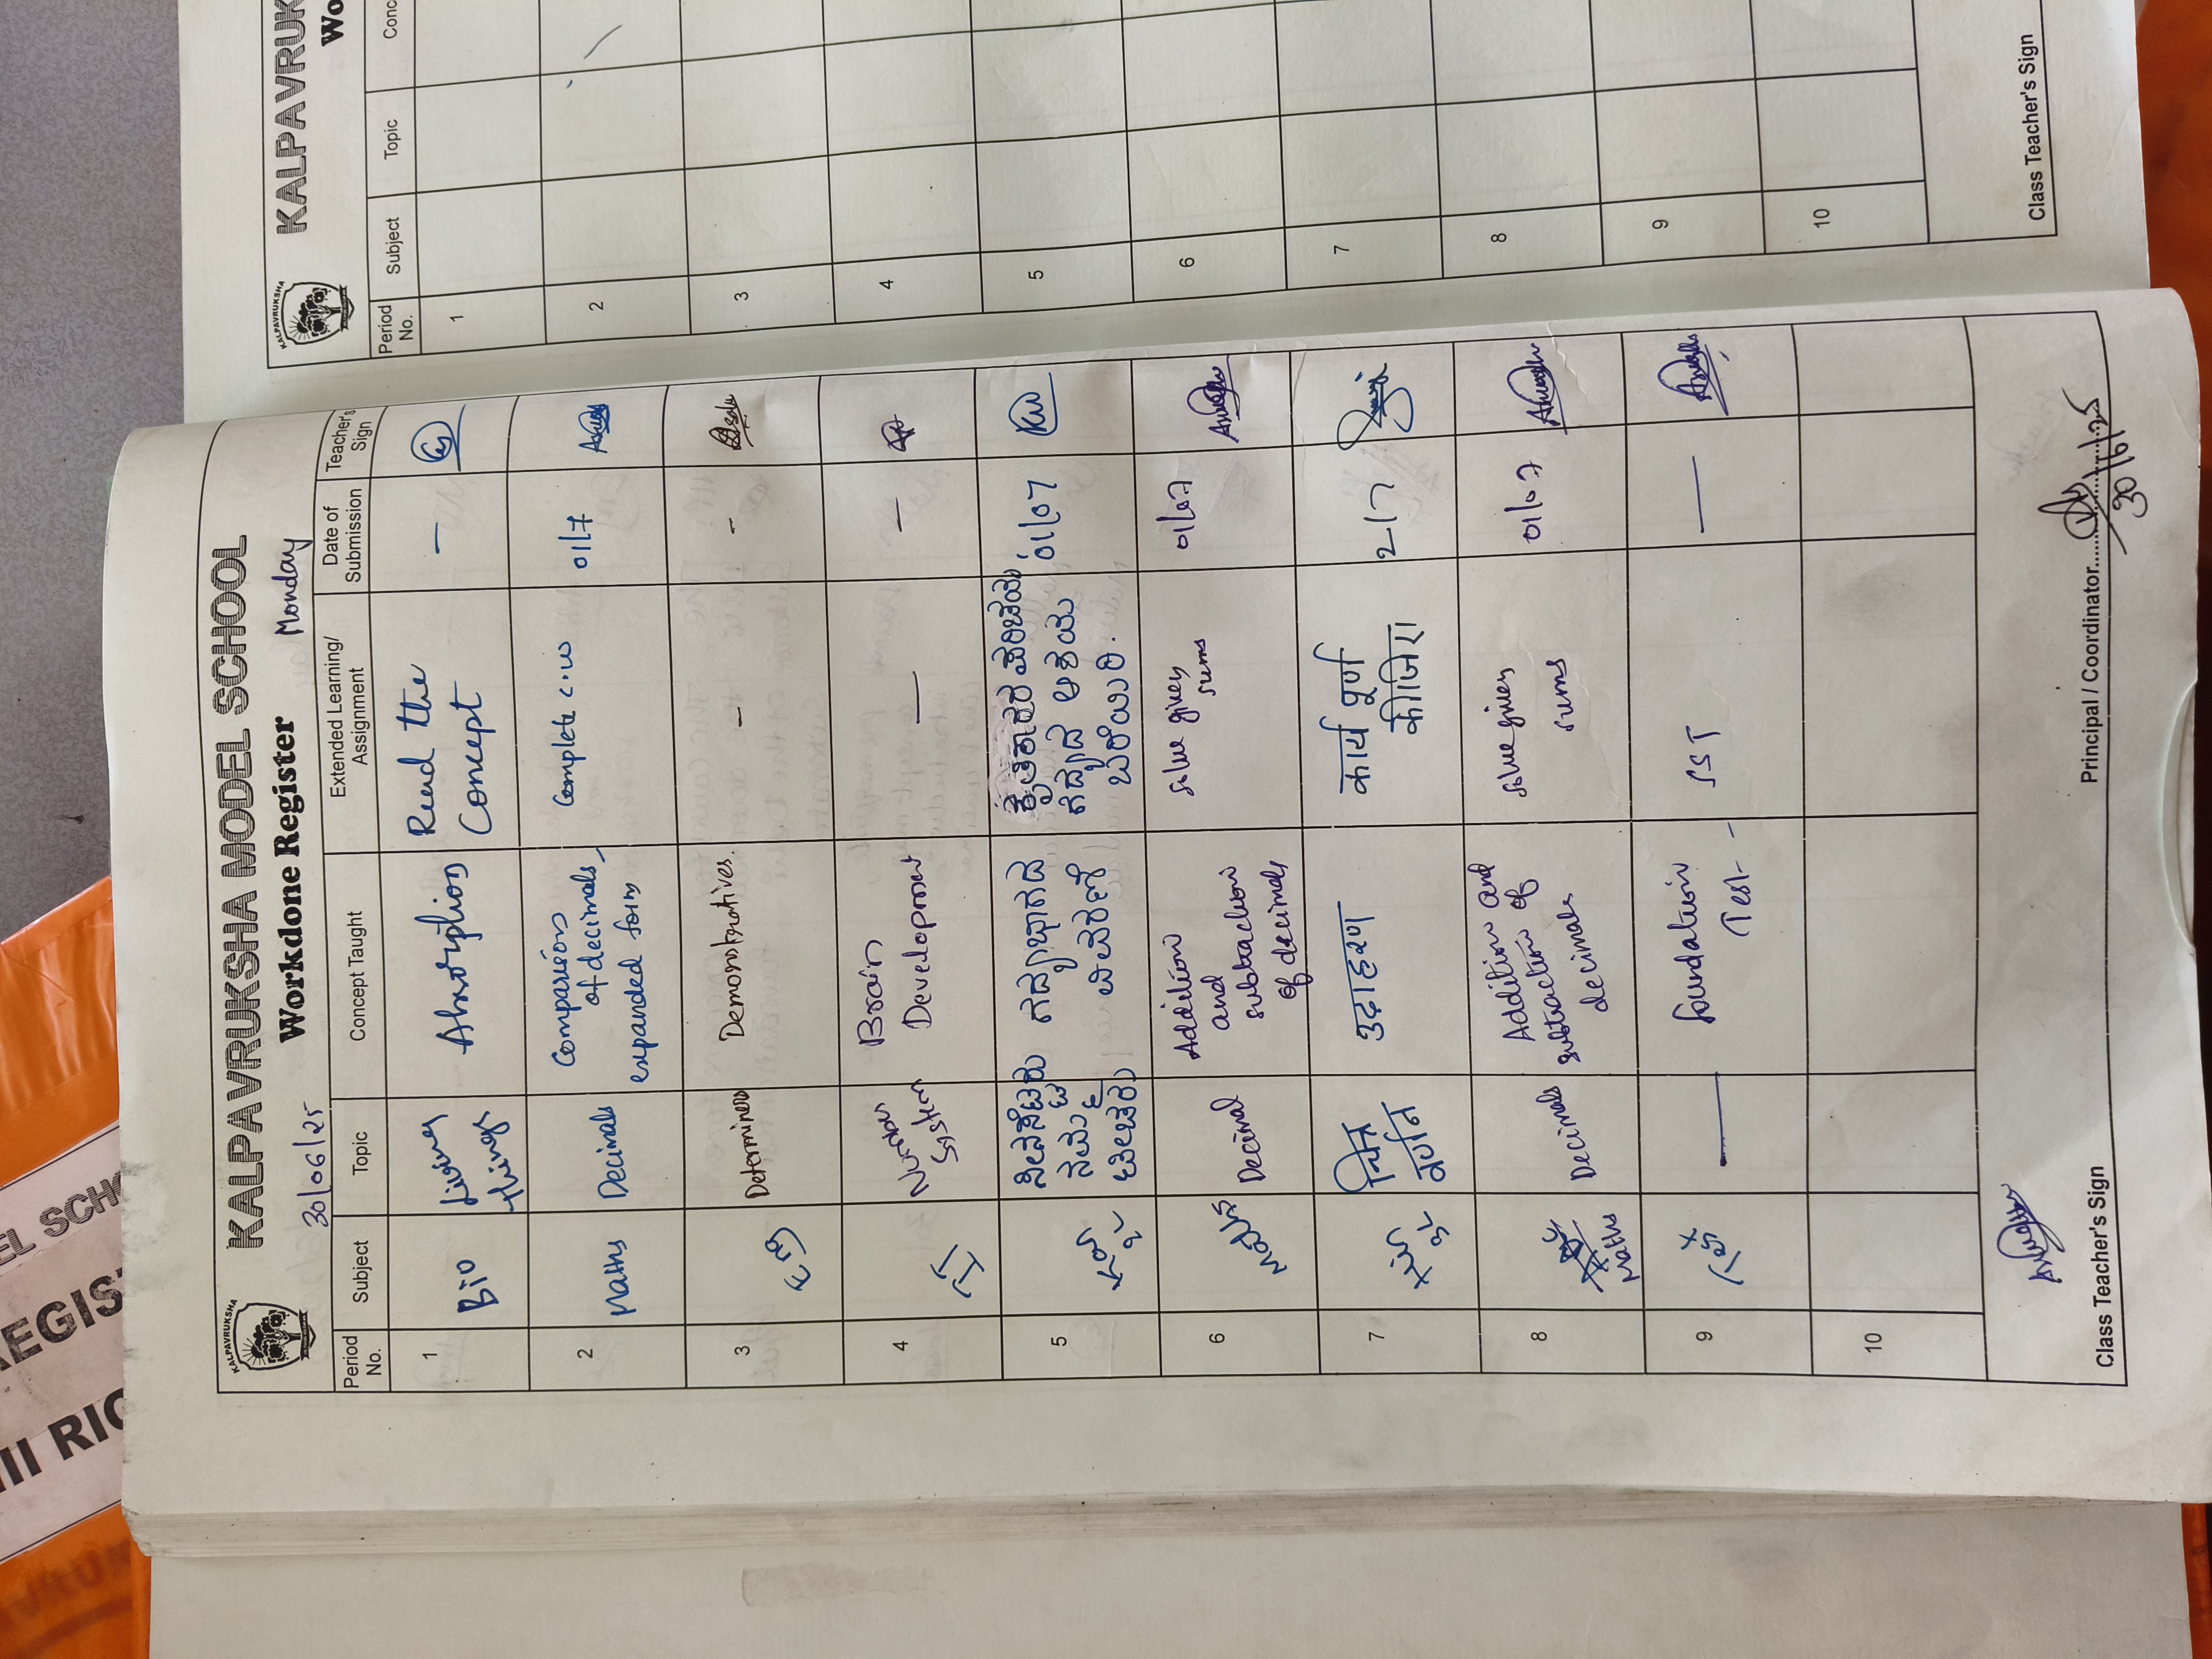 KALPAVRUKSHA
KALPAVRUKSHA MODEL SCHOOL
Workdone Register
30/06/25
Monday
Period No. Subject Topic Concept Taught Extended Learning/ Assignment Date of Submission Teacher's Sign
1 Bio Living things Absorption Read the Concept -
2 Maths Decimals Comparision of decimals, expanded form Complete c.w 01/7
3 Determiners Demonstratives. -  -
4 System Brain Development — —
5 ಗದ್ಯಭಾಗದ ವಿವರಣೆ ಗದ್ಯದ ಆಶಯ ಬರೆಯಿರಿ. 01/07
6 Decimal Addition and subtraction of decimals solve given sums 01/07
7 चित्र वर्णन उदाहरण कार्य पूर्ण कीजिए। 2/7
8 Maths Decimals Addition and subtraction of decimals solve given sums 01/07
9 — Foundation Test - SST —
10
Class Teacher's Sign
Principal / Coordinator
30/6/25
KALPAVRUKSHA
KALPAVRUK
Wo
Period No. Subject Topic Conc
1
2
3
4
5
6
7
8
9
10
Class Teacher's Sign
EL SCHO
REGIS
III RIG